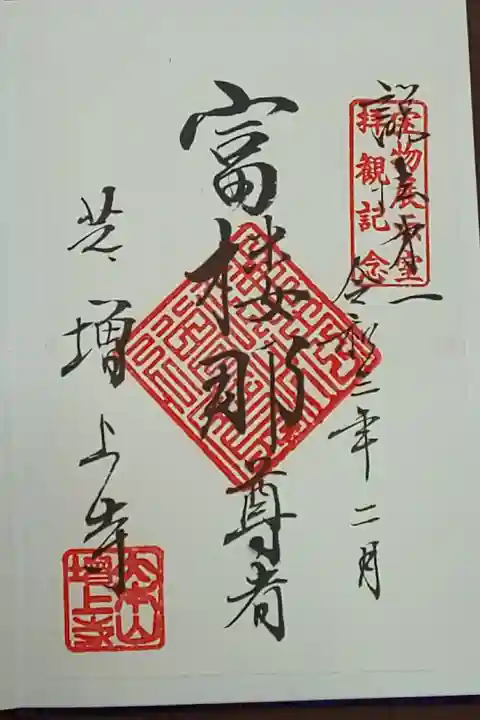 宝物展示室
拝観記念
説法第一
令和三年二月
富楼那尊者
芝
増上寺
大本山
増上寺